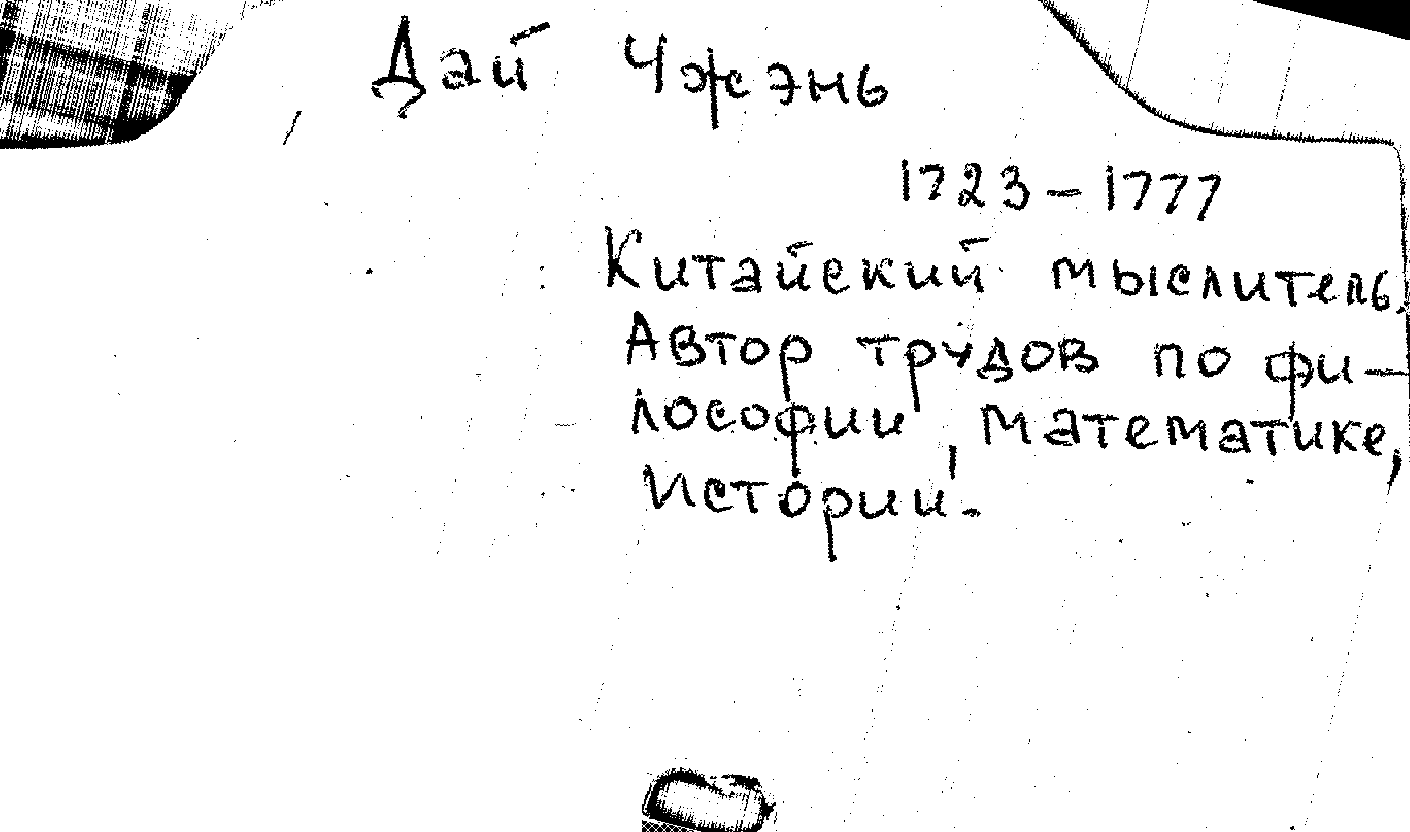 Дай Чжэнь
1723-1777
Китайский мыслитель.
Автор трудов по фи-
лософии, математике,
истории.